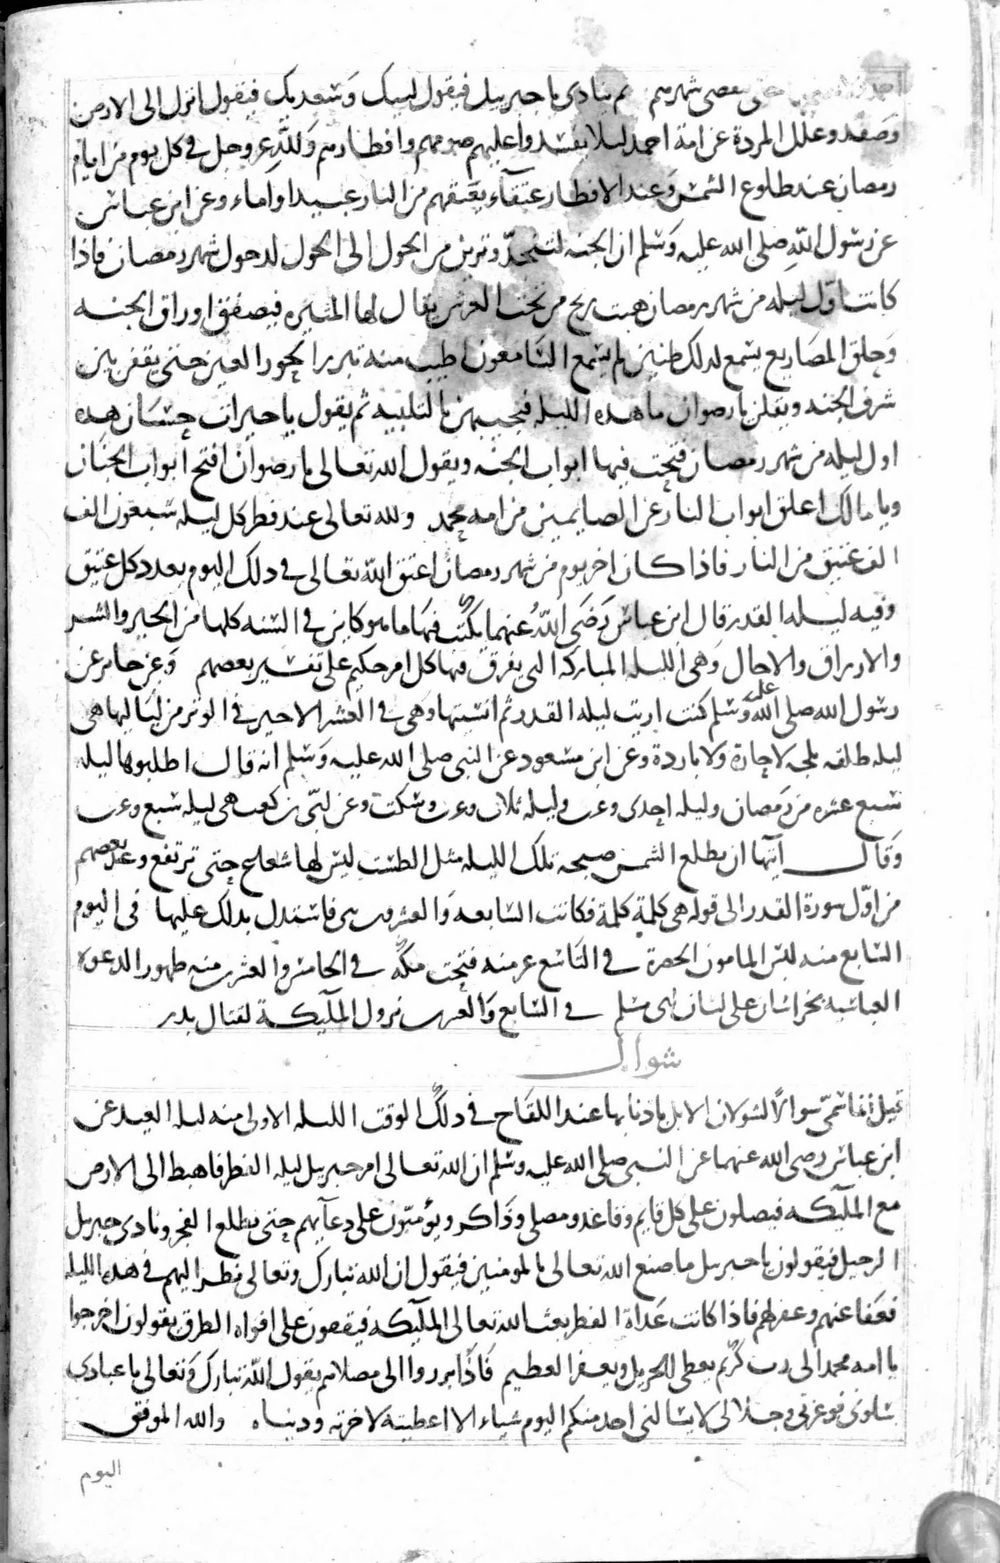 حتى ينقضى شهرهم ثم ينادى يا جبريل فيقول لبيك وسعديك فيقول انزل الى الارض
وصفد وغلل المردة عن امة احمد ليلا يفسدوا عليهم صومهم وافطارهم ولله عز وجل فى كل يوم من ايام
رمضان عند طلوع الشمس وعند الافطار عتقآء يعتقهم من النار عبيدا واماء وعن ابن عباس
عن رسول الله صلى الله عليه وسلم ان الجنة لتنجد وتزين من الحول الى الحول لدخول شهر رمضان فاذا
كانت اول ليله من شهر رمضان هبت ريح من تحت العرش يقال لها المثيره فيصفق اوراق الجنه
وحلق المصاريع يسمع لدلك طنين لم يسمع السامعون اطيب منه تبرز الحور العين حتى يقفن بين
شرف الجنه ويقلن يا رضوان ما هده الليله فيجيبهن بالتلبيه ثم يقول يا خيرات حسان هده
اول ليله من شهر رمضان فتحت فيها ابواب الجنه ويقول الله تعالى يا رضوان افتح ابواب الجنان
ويا مالك اغلق ابواب النار عن الصايمين من امه محمد ولله تعالى عند فطر كل ليله سبعون الف
الف عتيق من النار فاذا كان اخر يوم من شهر رمضان اعتق الله تعالى فى دلك اليوم بعدد كل عتيق
وفيه ليله القدر قال ابن عباس رضى الله عنهما يكتب فيها ما هو كاين فى السنه كلها من الخير والشر
والارزاق والاجال وهى الليله المباركه التى يفرق فيها كل امر حكيم على تفسير بعضهم وعن جابر عن
رسول الله صلى الله عليه وسلم كنت اريت ليله القدر ثم انسيتها وهى فى العشر الاخير فى الوتر من لياليها هى
ليله طلقه بلجه لا حارة ولا باردة وعن ابن مسعود عن النبى صلى الله عليه وسلم انه قال اطلبوها ليله
سبع عشره من رمضان وليله احدى وعشرين وليله ثلاث وعشرين وسكت وعن ابى بن كعب هى ليله سبع وعشرين
وقال ايتها ان يطلع الشمس صبيحه تلك الليله مثل الطشت ليس لها شعاع حتى ترتفع وعد بعضهم
من اول سورة القدر الى قوله هى كلمة كلمة فكانت السابعه والعشرين هى فاستدل بدلك عليها فى اليوم
السابع منه لبس المامون الخضرة فى التاسع عشر منه فتحت مكه فى الخامس والعشرين منه ظهور الدعوه
العباسيه بخراسان على لسان ابى مسلم فى السابع والعشرين نزول الملآيكة لقتال بدر
شوال
قيل انما سمى شوالًا لشولان الابل باذنابها عند اللقاح فى دلك الوقت الليله الاولى منه ليله العيد عن
ابن عباس رضى الله عنهما عن النبى صلى الله عليه وسلم ان الله تعالى امر جبريل ليله الفطر فاهبط الى الارض
مع الملآيكه فيصلون على كل قايم وقاعد ومصلى وذاكر ويؤمنون على دعآيهم حتى يطلع الفجر ونادى جبريل
الرحيل فيقولون يا جبريل ما صنع الله تعالى بالمومنين فيقول ان الله تبارك وتعالى نظر اليهم فى هده الليله
فعفا عنهم وغفر لهم فاذا كانت غداة الفطر يبعث الله تعالى الملآيكه فيقفون على افواه الطرق يقولون اخرجوا
يا امه محمد الى رب كريم يعطى الجزيل ويغفر العظيم فاذا برزوا الى مصلاهم يقول الله تبارك وتعالى يا عبادى
سلونى فوعزتى وجلالى لا يسالنى احد منكم اليوم شياء الا اعطيته لاخرته ودنياه والله الموفق
اليوم